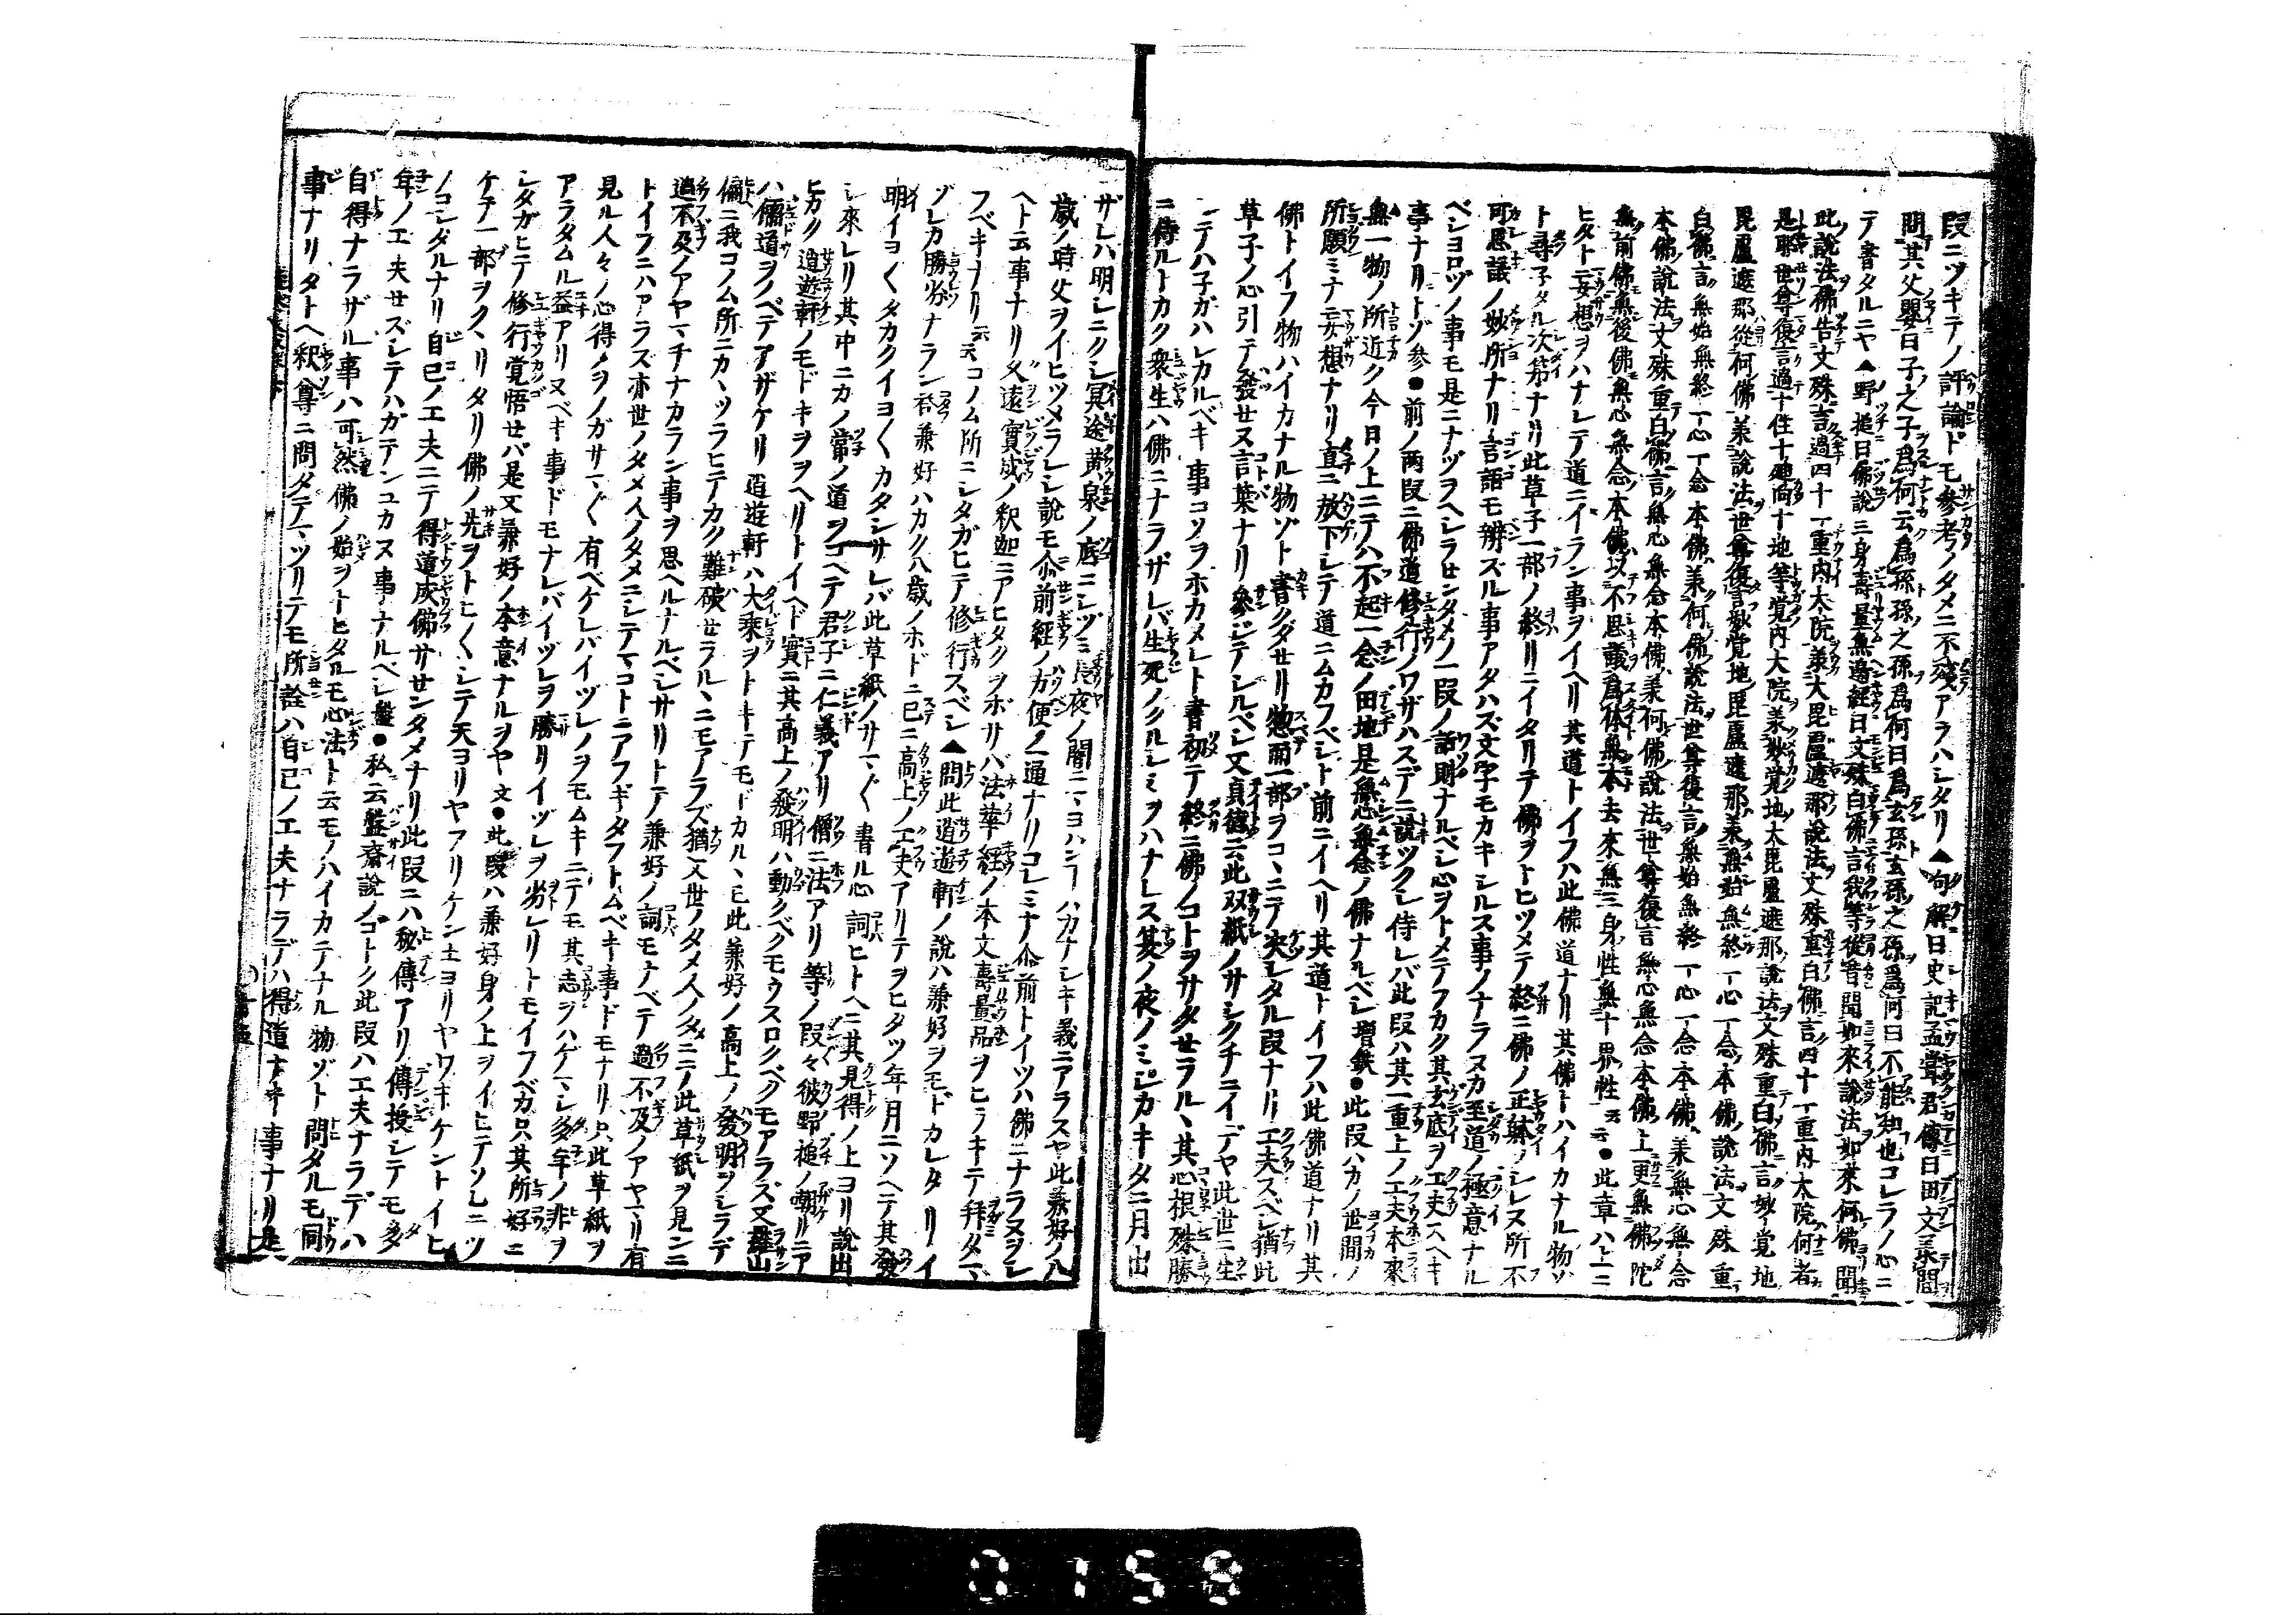 段ニツキテノ評論ドモ参考ノタメニ不殘アラハシタリ▲句解曰史記孟嘗君傳曰田文承間
問其父嬰曰子之子爲何云爲孫孫之孫爲何曰爲玄孫玄孫之孫爲何曰不能知也コレラノ心ニ
テ書タルニヤ▲野槌曰佛說三身壽量無邊經曰文殊白佛言我等從昔聞如來說法如來何佛聞
此說法佛告文殊言過四十一重內大院兼大毘盧遮那說法文殊重白佛言四十一重內大院何者
是耶世尊復言過十住十廻向十地等覚內大院兼妙覚地大毘盧遮那說法文殊重白佛言妙覚地
毘盧遮那從何佛兼說法世尊復言妙覚地毘盧遮那兼無始無終一心一念本佛說法文殊重
白佛言無始無終一心一念本佛兼何佛說法世尊復言無始無終一心一念本佛兼無心無念
本佛說法文殊重白佛言無心無念本佛兼何佛說法世尊復言無心無念本佛上更無佛陀
無前佛無後佛無心無念本佛以不思議爲体無本去來無三身性無十界性 云云●此章ハ上ニ
ヒタト妄想ヲハナレテ道ニイラン事ヲイヘリ其道トイフハ此佛道ナリ其佛トハイカナル物ソ
ト尋子タル次第ナリ此草子一部ノ終リニイタリテ佛ヲトヒツメテ終ニ佛ノ正躰ノシレス所不
可思議ノ妙所ナリ言語モ辨ズル事アタハズ文字モカキシルス事ノナラヌカ至道ノ極意ナル
ベシヨロヅノ事モ是ニナゾヲヘシラセンタメノ一段ノ話則ナルベシ心ヲトメテフカク其玄底ヲ工夫スヘキ
事ナリトゾ参●前ノ兩段ニ佛道修行ノワザハスデニ說ツクシ侍レバ此段ハ其一重上ノ工夫本來
無一物ノ所近ク今日ノ上ニテハ不起一念ノ田地是無心無念ノ佛ナルベシ增鉄●此段ハカノ世間ノ
所願ミナ妄想ナリ直ニ放下シテ道ニムカフベシト前ニイヘリ其道トイフハ此佛道ナリ其
佛トイフ物ハイカナル物ゾト書クダセリ惣而一部ヲコヽニテ決シタル段ナリ工夫スベシ猶此
草子ノ心引テ發せヌ言葉ナリ參シテシルベシ又貞德云此双紙ノサシクチニイデヤ此世ニ生
レテハ子ガハレカルベキ事コソヲホカメレト書初テ終ニ佛ノコトヲサタせラルヽ其心根殊勝
ニ侍ルトカク衆生ハ佛ニナラザレバ生死ノクルシミヲハナレス其ノ夜ノミジカキタニ月出
ザレハ明シニクシ冥途黄泉ノ底ニシヅミ長夜ノ闇ニマヨハンコハカナシキ義ニアラスヤ此兼好ノ八
歲ノ時父ヲイヒツメラレシ說モ尒前經ノ方便ノ一通ナリコレミナ尒前トイツハ佛ニナラヌヲシ
ヘト云事ナリ久遠實成ノ釈迦ニアヒタクヲボサバ法華經ノ本文壽量品ヲヒラキテ拜タマ
フベキナリ 云云コノム所ニシタガヒテ修行スベシ▲問此逍遊軒ノ說ハ兼好ヲモドカレタリイ
ヅレカ勝劣ナラン答兼好ハカク八歲ノホドニ已ニ高上ノ工夫アリテヲヒタツ年月ニソヘテ其發
明イヨ〱タカクイヨ〱カタシサレバ此草紙ノサマ〲書ル心詞ヒトヘニ其見得ノ上ヨリ說出
シ來レリ其中ニカノ常ノ道ヲコヘテ君子ニ仁義アリ僧ニ法アリ等ノ段々彼野槌ノ嘲ルニア
ヒカク逍遊軒ノモドキヲヲヘリトイヘド實ニ其高上ノ發明ハ動クベクモウスロクベクモアラズ又羅山
ハ儒道ヲノベテアザケリ逍遊軒ハ大乘ヲトキテモドカルヽモ此兼好ノ高上ノ發明ヲシラデ
偏ニ我コノム所ニカヽツラヒテカク難破せラルヽニモアラズ猶又世ノタメ人ノタメニノ此草紙ヲ見ンニ
過不及ノアヤマチナカラン事ヲ思ヘルナルベシサリトテ兼好ノ詞モナベテ過不及ノアヤマリ有
トイフニハアラス亦世ノタメ人ノタメニシテマコトニアフギタフトムベキ事ドモナリ只此草紙ヲ
見ル人々ノ心得メヲノガサマ〲有ベケレバイヅレノヲモムキニテモ其志ヲハゲマシ多年ノ非ヲ
アラタムル益アリヌベキ事ドモナレバイヅレヲ勝リイヅレヲ劣レリトモイフベカラス只其所好ニ
シタガヒテ修行覚悟せバ是又兼好ノ本意ナルヲヤ 文●此段ハ兼好身ノ上ヲイヒテソレニツ
ケテ一部ヲクヽリタリ佛ノ先ヲトヒ〱シテ天ヨリヤフリケン土ヨリヤワキケントイヒ
ノコシタルナリ自己ノ工夫ニテ得道成佛サせンタメナリ此段ニハ秘傳アリ傳授シテモ多
年ノ工夫せズシテハガテンユカヌ事ナルベシ盤●私云盤齋說ノゴトク此段ハ工夫ナラデハ
自得ナラザル事ハ可然佛ノ始ヲトヒタルモ心法ト云モノハイカテナル物ゾト問タルモ同
事ナリタトヘ釈尊ニ問タテマツリテモ所詮ハ自己ノ工夫ナラデハ得道ナキ事ナリ是